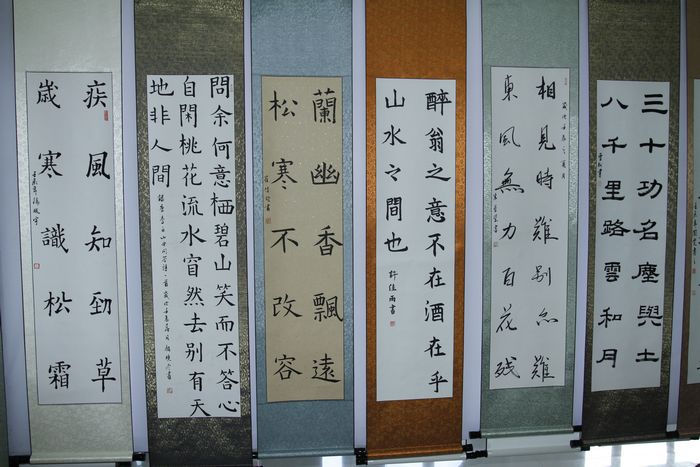 疾風知勁草
歲寒識松霜
問余何意栖碧山笑而不答心
自閑桃花流水窅然去别有天
地非人間
蘭幽香飄遠
松寒不改容
醉翁之意不在酒在乎
山水之間也
許佳雨書
相見時難别亦難
東風無力百花残
三十功名塵與土
八千里路雲和月